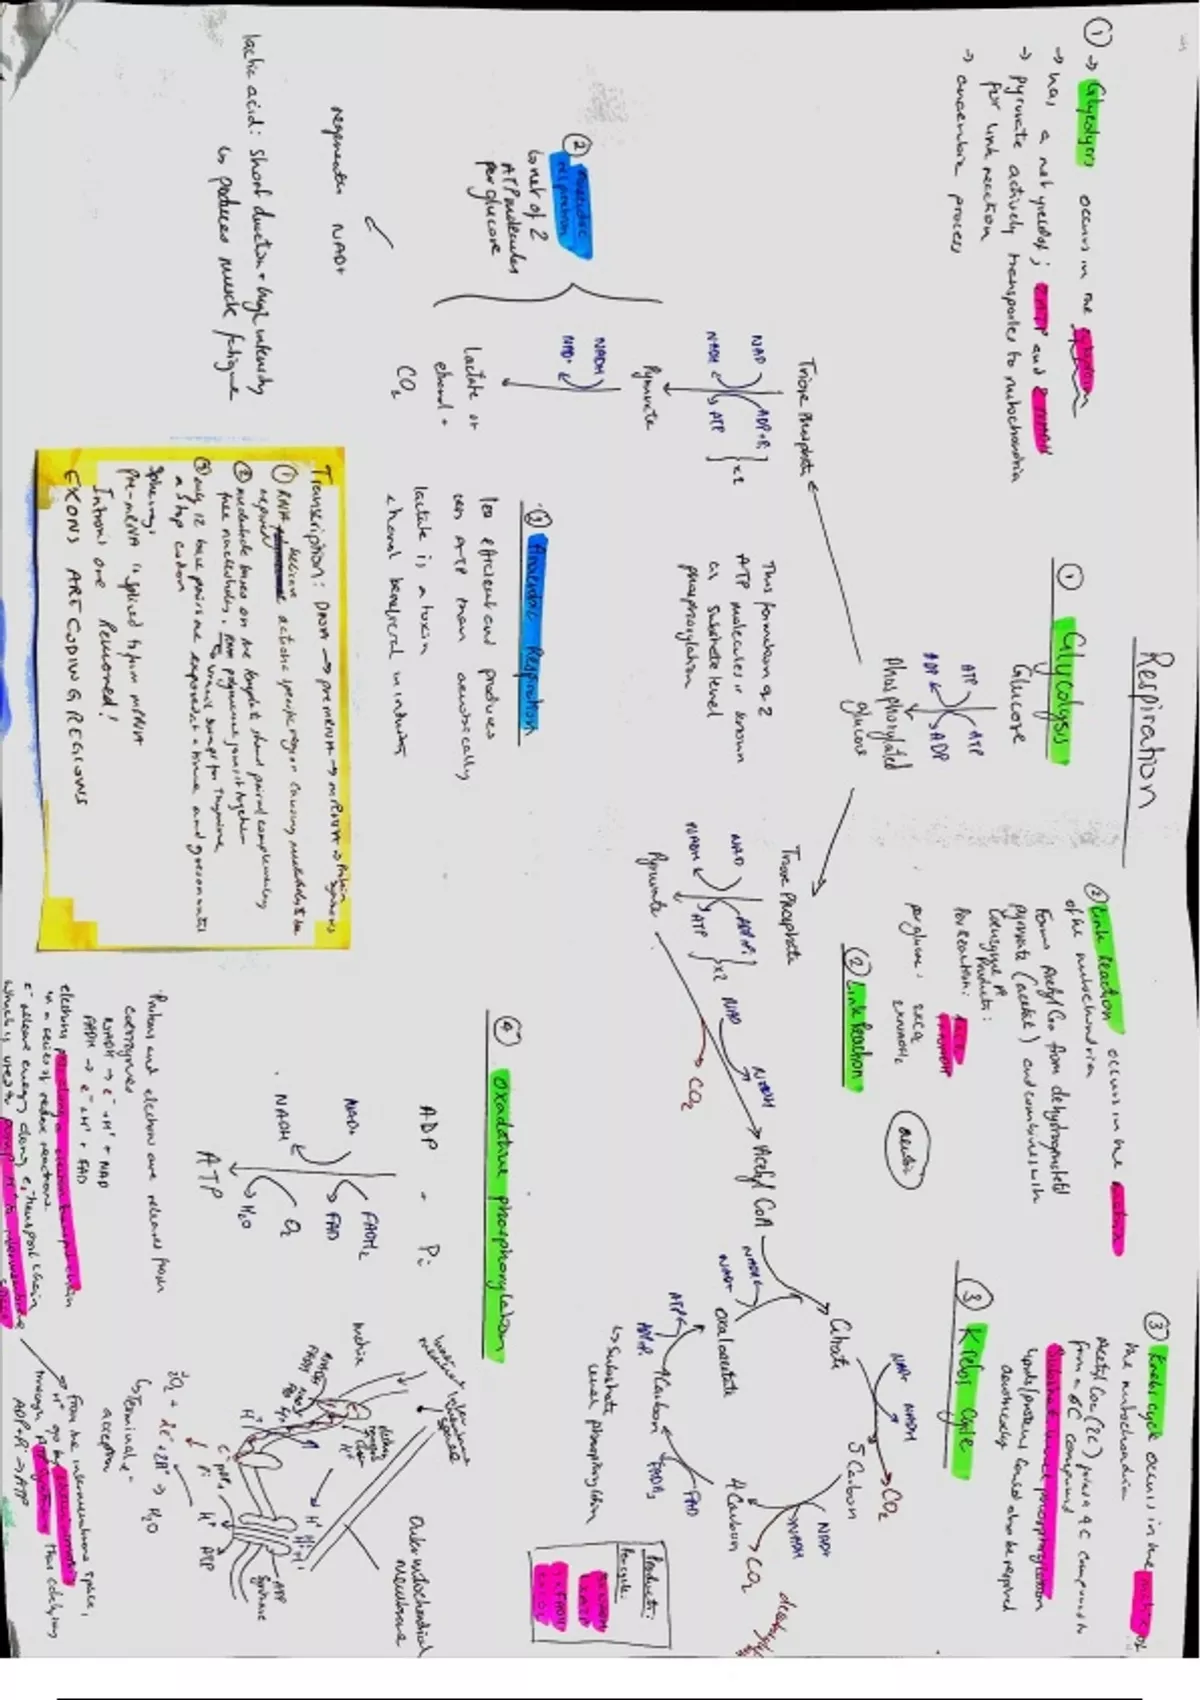 Respiration
① → Glycolysis occurs in the cytoplasm
→ has a net yield of ; 2ATP and 2 NADH
→ pyruvate actively transported to mitochondria
for link reaction
→ anaerobic process
① Glycolysis
Glucose
ATP
ATP
ADP
ADP
Phosphorylated
glucose
Triose phosphate
NAD
NADH
ADP+Pi
ATP
x2
Pyruvate
NADH
NAD+
Lactate or
ethanol +
CO2
② anaerobic
respiration
↳ net of 2
ATP molecules
per glucose
regenerates NAD+
lactic acid: short duration + high intensity
↳ produces muscle fatigue
This formation of 2
ATP molecules is known
as substrate level
phosphorylation
② Anaerobic Respiration
less efficient and produces
less ATP than aerobically
lactate is a toxin
ethanol beneficial in industry
Triose Phosphate
NAD
NADH
ADP+Pi
ATP
x2
Pyruvate
② Link Reaction occurs in the matrix
of the mitochondria
Forms Acetyl Coa from dehydrogenated
pyruvate (acetate) and combines with
coenzyme A
Products:
Per reaction:
per glucose: 2xCO2
2xNADH2
② Link Reaction
NAD
NADH
CO2
Acetyl CoA
③ Krebs cycle occurs in the matrix of
the mitochondria
Acetyl Coa (2C) joins a 4C compound to
form a 6C compound
Substrate level phosphorylation
lipids/proteins could also be respired
aerobically
③ Krebs Cycle
Citrate
NAD+
NADH
CO2
5 Carbon
NAD+
NADH
CO2
4 Carbon
FAD
FADH2
4 Carbon
ADP+Pi
ATP
oxaloacetate
NADH
NAD+
↳ Substrate
level phosphorylation
Products:
Per cycle:
④ Oxadative phosphorylation
ADP + Pi
NAD+
NADH
FADH2
FAD
O2
H2O
ATP
Protons and electrons are released from
coenzymes
NADH → e⁻ + H⁺ + NAD
FADH → e⁻ + H⁺ + FAD
electrons pass along a electron transport chain
in a series of redox reactions
e⁻ release energy along e⁻ transport chain
which is used to pump H⁺ to intermembrane
space
From the intermembrane space,
H⁺ go by chemiosmosis
through ATP synthase thus catalysing
ADP+Pi → ATP
matrix
inner
membrane
intermembrane
space
Outer mitochondrial
membrane
ATP
Synthase
H⁺
ATP
½O2 + 2e⁻ + 2H⁺ → H2O
↳ Terminal e⁻
acceptor
Transcription: DNA → pre mRNA → mRNA → Protein
synthesis
① RNA helicase acts on specific region causing nucleotides to be
exposed
② nucleotide bases on the template strand paired complementary
free nucleotides. RNA polymerase joins it together
↳ uracil swaps for thymine
③ only 12 base pairs are exposed at a time and goes on until
a stop codon
Splicing:
pre-mRNA is spliced to form mRNA
Introns are Removed!
EXONS ARE CODING REGIONS